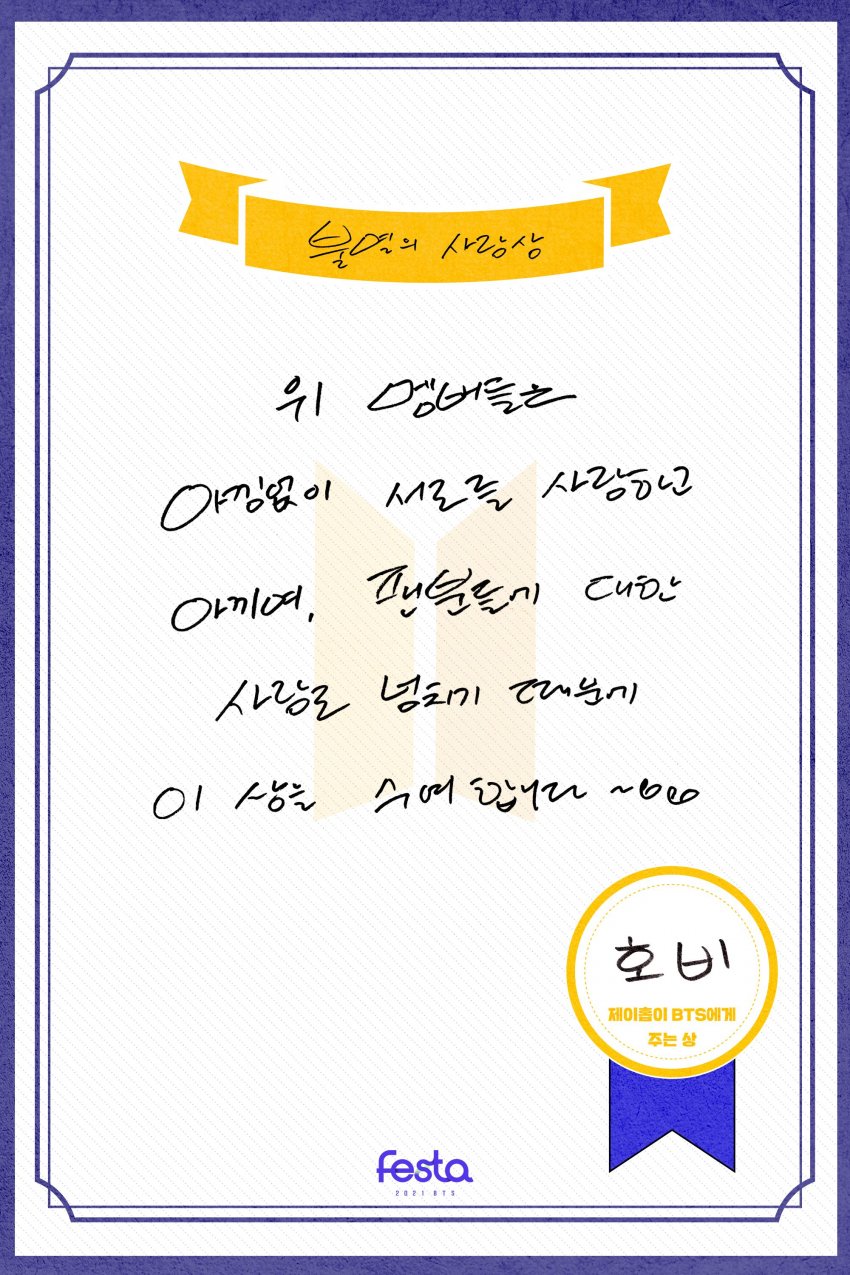 불멸의 사랑상
위 멤버들은
아낌없이 서로를 사랑하고
아끼며, 팬분들에 대한
사랑도 넘치기 때문에
이 상을 수여합니다 ~
호비
제이홉이 BTS에게
주는 상
festa
2021 BTS